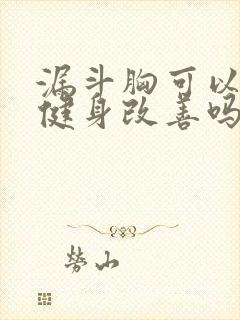 漏斗胸可以
健身改善吗
劳山